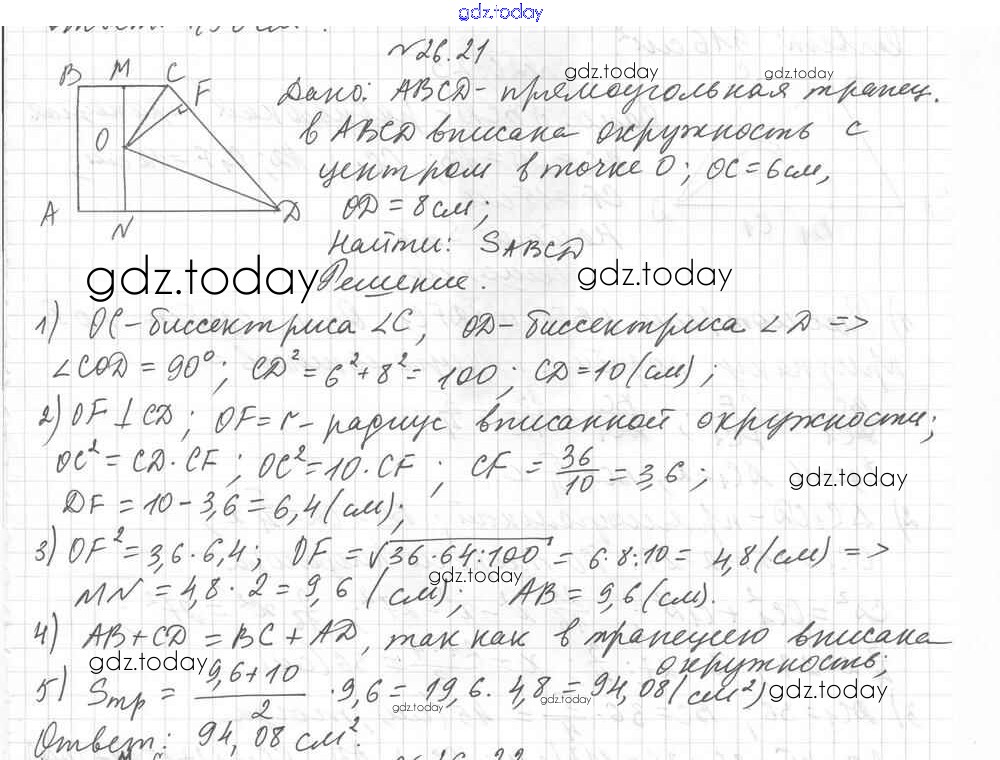 gdz.today
№26.21
B M C F
O
A N D
gdz.today gdz.today
Дано: ABCD - прямоугольная трапец.
в ABCD вписана окружность с
центром в точке O; OC = 6 см,
OD = 8 см;
Найти: S_ABCD
gdz.today gdz.today
Решение.
1) OC - биссектриса ∠C, OD - биссектриса ∠D =>
∠COD = 90°; CD² = 6² + 8² = 100; CD = 10 (см);
2) OF ⊥ CD; OF = r - радиус вписанной окружности;
OC² = CD · CF; OC² = 10 · CF; CF = 36/10 = 3,6;
gdz.today
DF = 10 - 3,6 = 6,4 (см);
3) OF² = 3,6 · 6,4; OF = √36·64:100 = 6·8:10 = 4,8 (см) =>
gdz.today
MN = 4,8 · 2 = 9,6 (см); AB = 9,6 (см).
4) AB + CD = BC + AD, так как в трапецию вписана
окружность;
gdz.today
5) Sтр = (9,6+10)/2 · 9,6 = 19,6 · 4,8 = 94,08 (см²)
gdz.today gdz.today gdz.today
Ответ: 94,08 см².